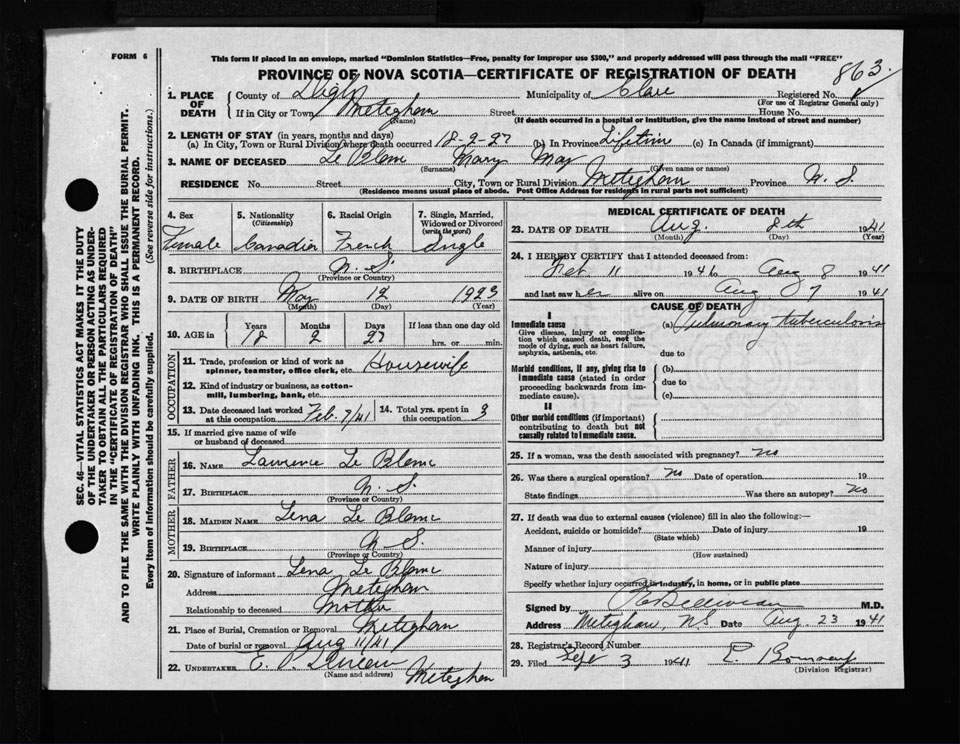 FORM 6
This form if placed in an envelope, marked "Dominion Statistics—Free, penalty for improper use $300," and properly addressed will pass through the mail "FREE"
PROVINCE OF NOVA SCOTIA—CERTIFICATE OF REGISTRATION OF DEATH
863
1. PLACE OF DEATH
County of Digby Municipality of Clare Registered No.
(For use of Registrar General only)
If in City or Town Meteghan Street House No.
(Name) (If death occurred in a hospital or institution, give the name instead of street and number)
2. LENGTH OF STAY (in years, months and days)
(a) In City, Town or Rural Division where death occurred 18-2-27 (b) In Province Lifetime (c) In Canada (if immigrant)
3. NAME OF DECEASED Le Blanc Mary May
(Surname) (Given name or names)
RESIDENCE No. Street City, Town or Rural Division Meteghan Province N. S.
(Residence means usual place of abode. Post Office Address for residents in rural parts not sufficient)
4. Sex 5. Nationality 6. Racial Origin 7. Single, Married, Widowed or Divorced
(Citizenship) (write the word)
Female Canadian French Single
8. BIRTHPLACE N. S.
(Province or Country)
9. DATE OF BIRTH May 12 1923
(Month) (Day) (Year)
10. AGE in Years Months Days If less than one day old
18 2 27 hrs. or min.
OCCUPATION
11. Trade, profession or kind of work as spinner, teamster, office clerk, etc. Housewife
12. Kind of industry or business, as cotton-mill, lumbering, bank, etc.
13. Date deceased last worked at this occupation Feb. 7/41 14. Total yrs. spent in this occupation 3
15. If married give name of wife or husband of deceased
FATHER
16. NAME Lawrence Le Blanc
17. BIRTHPLACE N. S.
(Province or Country)
MOTHER
18. MAIDEN NAME Lena Le Blanc
19. BIRTHPLACE N. S.
(Province or Country)
20. Signature of informant Lena Le Blanc
Address Meteghan
Relationship to deceased Mother
21. Place of Burial, Cremation or Removal Meteghan
Date of burial or removal Aug 11/41
22. UNDERTAKER E. Meteghan
(Name and address)
MEDICAL CERTIFICATE OF DEATH
23. DATE OF DEATH Aug. 8th 1941
(Month) (Day) (Year)
24. I HEREBY CERTIFY that I attended deceased from:
Feb 11 194 to Aug 8 1941
and last saw her alive on Aug 7 1941
CAUSE OF DEATH
I
Immediate cause (a) Pulmonary tuberculosis
Give disease, injury or complication which caused death, not the mode of dying, such as heart failure, asphyxia, asthenia, etc.
due to
Morbid conditions, if any, giving rise to immediate cause (stated in order proceeding backwards from immediate cause).
(b)
due to
(c)
II
Other morbid conditions (if important) contributing to death but not causally related to immediate cause.
25. If a woman, was the death associated with pregnancy? no
26. Was there a surgical operation? no Date of operation 19
State findings Was there an autopsy? no
27. If death was due to external causes (violence) fill in also the following:—
Accident, suicide or homicide? Date of injury 19
(State which)
Manner of injury
(How sustained)
Nature of injury
Specify whether injury occurred in industry, in home, or in public place
Signed by Belliveau M.D.
Address Meteghan, N.S Date Aug. 23 1941
28. Registrar's Record Number
29. Filed Sept 3 1941
(Division Registrar)
SEC. 46—VITAL STATISTICS ACT MAKES IT THE DUTY
OF THE UNDERTAKER OR PERSON ACTING AS UNDER-
TAKER TO OBTAIN ALL THE PARTICULARS REQUIRED
IN THE "CERTIFICATE OF REGISTRATION OF DEATH"
AND TO FILE THE SAME WITH THE DIVISION REGISTRAR WHO SHALL ISSUE THE BURIAL PERMIT.
WRITE PLAINLY WITH UNFADING INK. THIS IS A PERMANENT RECORD.
Every item of information should be carefully supplied. (See reverse side for instructions.)